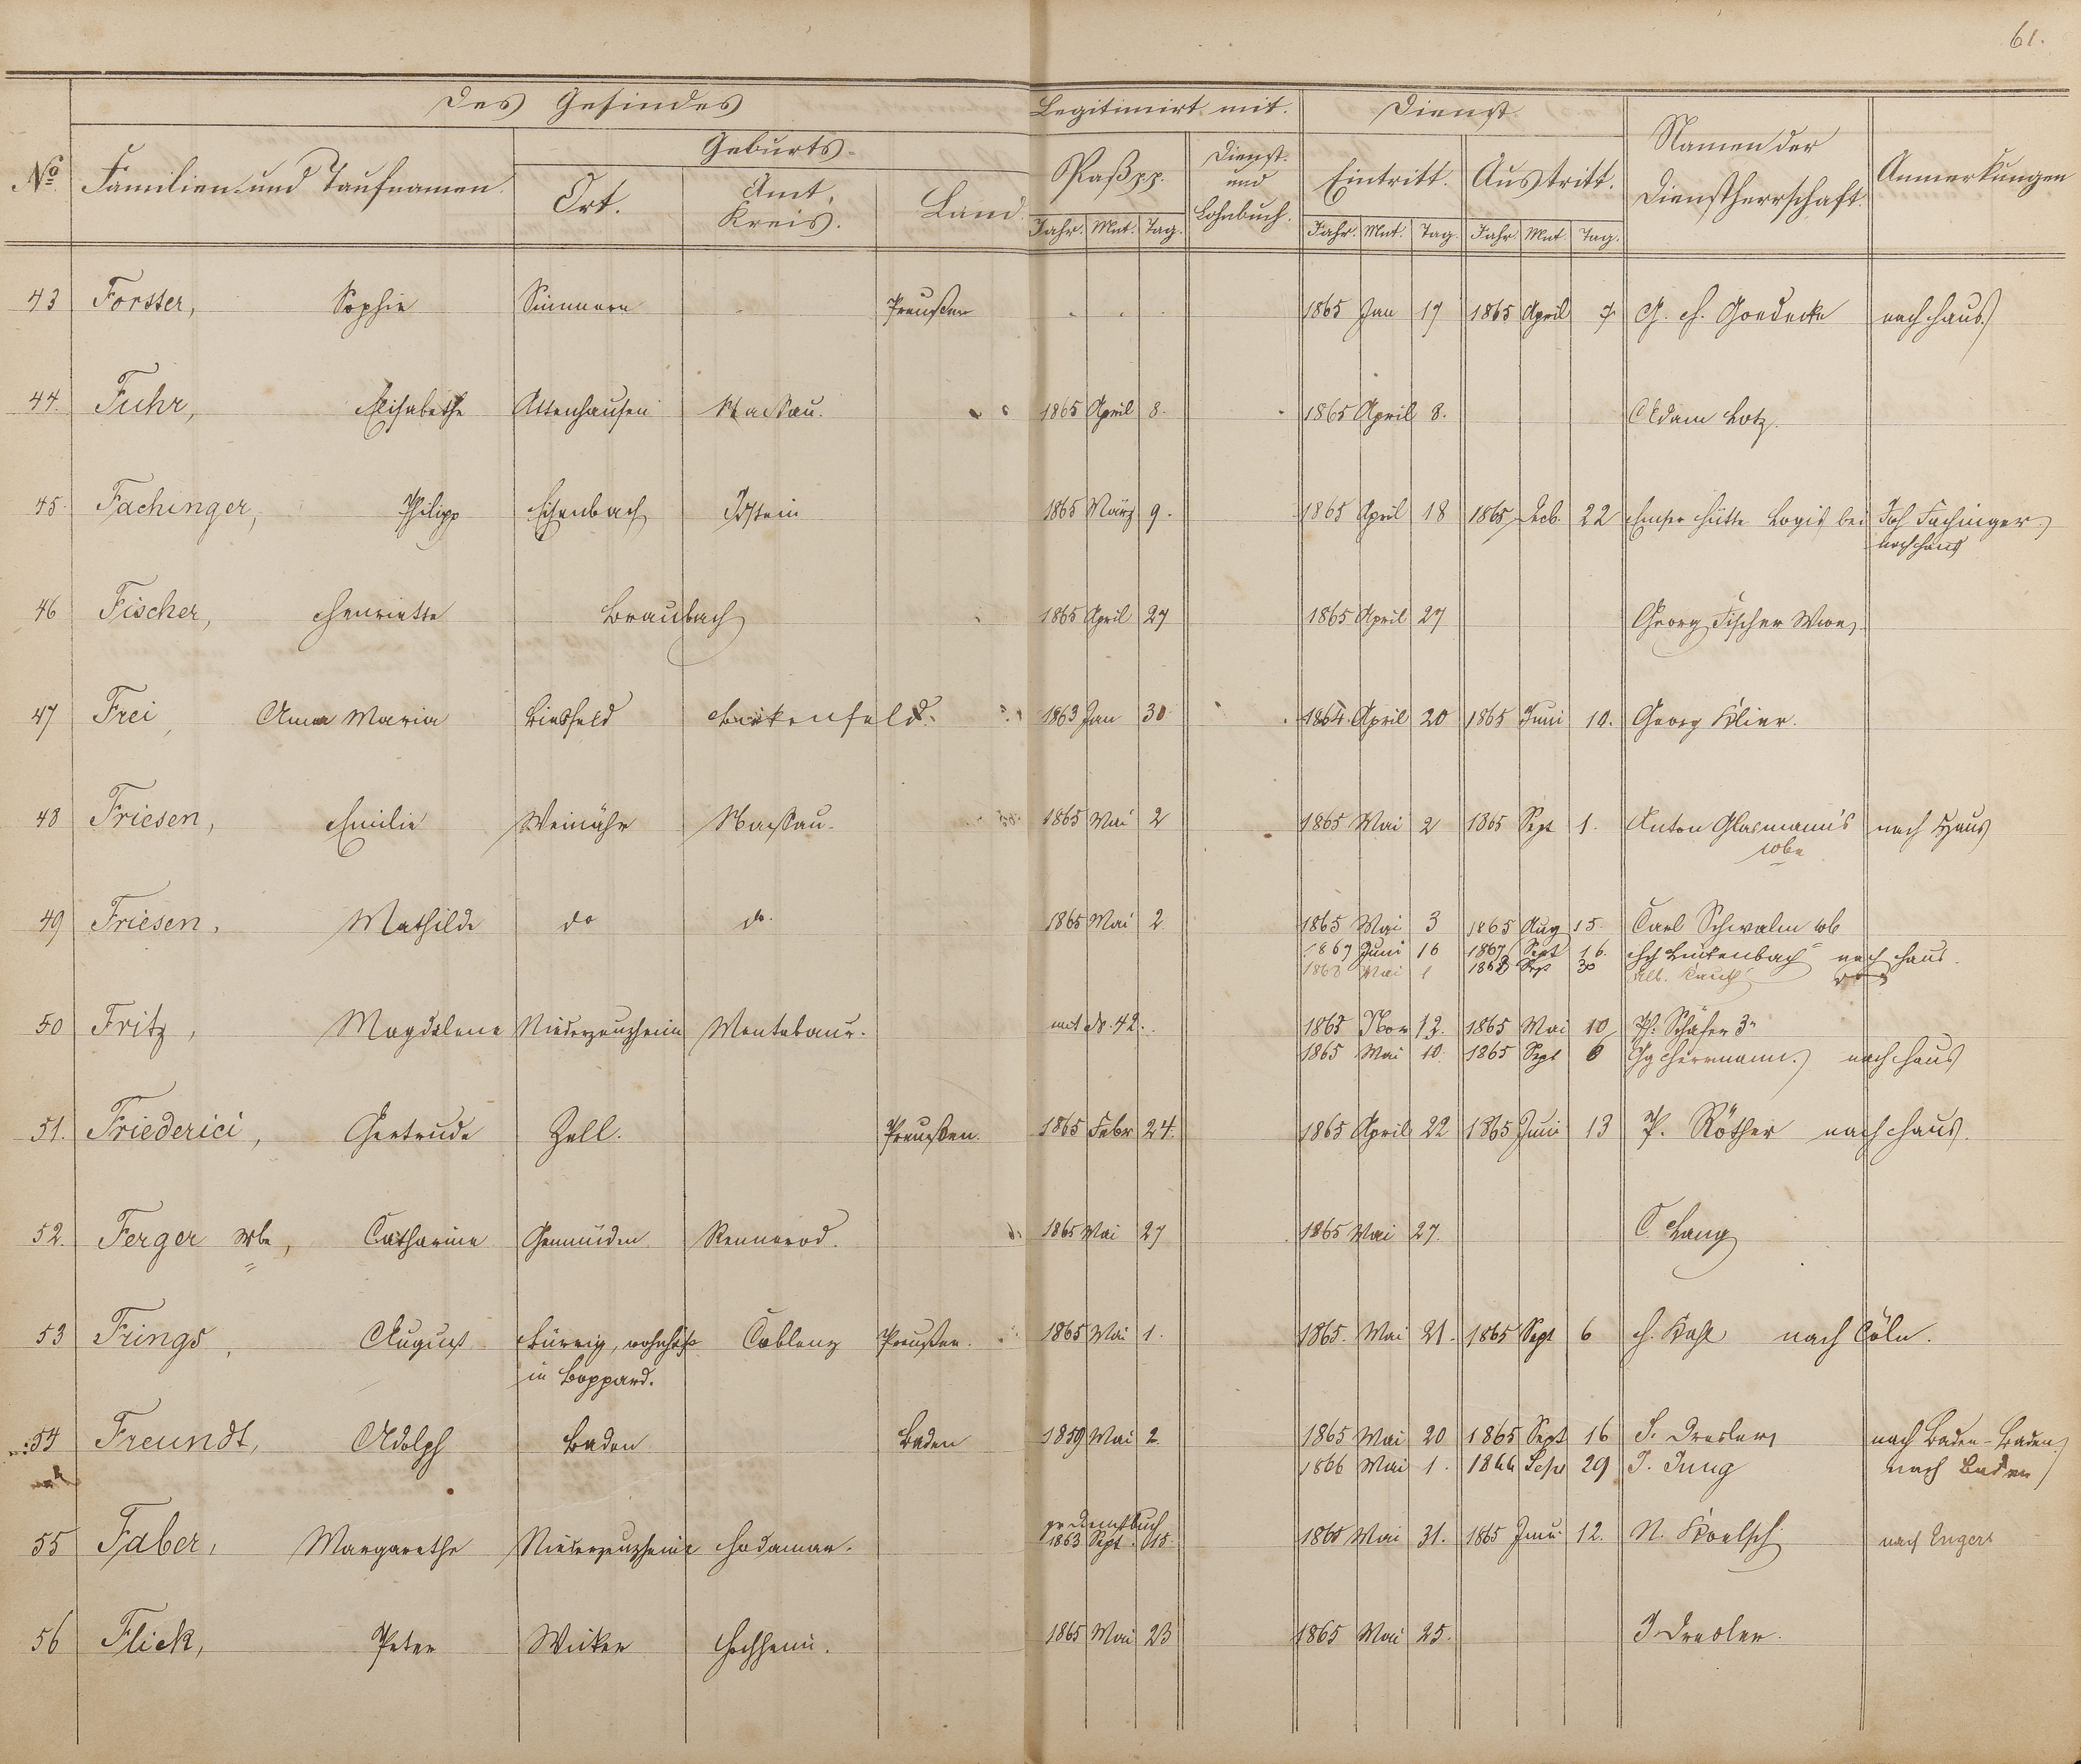 61.
Des Gesindes
Legitimirt mit.
Dienst
Namen der Dienstherrschaft.
Anmerkungen
No
Familien- und Taufnamen.
Geburts-
Ort.
Amt, Kreis.
Land.
Paß pp.
Dienst- und Lohnbuch.
Eintritt.
Austritt.
Jahr. Mnt. Tag. Jahr. Mnt. Tag. Jahr. Mnt. Tag.
43 Forster, Sophie Simmern Preußen 1865 Jan 17 1865 April 7 G. H. Goedecke nach Haus.
44. Fuhr, Elisabethe Attenhausen Nassau. 1865 April 8. 1865 April 8. Adam Lotz.
45. Fachinger, Philipp Eisenbach Idstein 1865 März 9. 1865 April 18 1865 Decb. 22 Emser Hütte Logis bei Joh Fachinger.
nach Haus
46 Fischer, Henriette Braubach 1865 April 27 1865 April 27 Georg Fischer Wwe.
47 Frei, Anna Maria Birkenfeld. 1863 Jan 30 1864. April 20 1865 Juni 10. Georg Klier.
48 Friesen, Emilie Weinähr Nassau. 1865 Mai 2 1865 Mai 2 1865 Sept 1. Anton Glasmann's nach Haus
wbe
49 Friesen, Mathilde do do. 1865 Mai 2. 1865 Mai 3 1865 Aug 15. Carl Schwalm wb
1867 Juni 16 1867 Sept 16. Lückenbach nach Haus.
1868 Mai 1 1868 Sep 30
50 Fritz, Magdalene Niederzeuzheim Montabaur. mit No. 42. 1863 Nov 12. 1865 Mai 10 Ph. Schäfer 3r
1865 Mai 10. 1865 Sept 6 Gg Herrmann. nach Haus
51. Friederici, Gertrude Zell. Preußen. 1865 Febr 24. 1865 April 22 1865 Juni 13 P. Röther nach Haus.
52. Ferger wbe, Catharine Gemünden Rennerod. 1865 Mai 27 1865 Mai 27. C. Lang
53 Frings, August Türnig, wohnhaft Coblenz Preußen. 1865 Mai 1. 1865. Mai 21. 1865 Sept 6 H. Kahl nach Cöln.
in Boppard.
54 Freundt, Adolph Baden Baden 1859 Mai 2. 1865 Mai 20 1865 Sept 16 J. Dresler, nach Baden-Baden.
1866 Mai 1. 1866 Sept 29 J. Jung nach Baden
55 Faber, Margarethe Niederzeuzheim Hadamar. pr Dienstbuch
1863 Sept. 15. 1865 Mai 31. 1865 Juni 12. N. Koelsch nach Engers
56 Flick, Peter Wicker Hochheim. 1865 Mai 23 1865 Mai 25. J. Dresler.